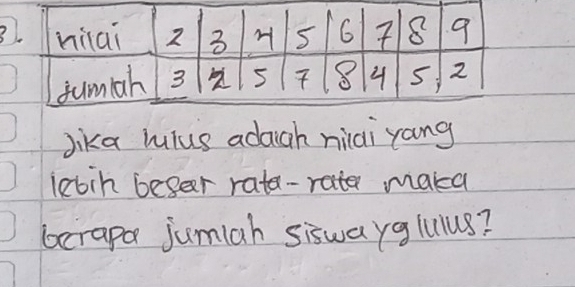 3. nilai 2 3 4 5 6 7 8 9
jumlah 3 2 5 7 8 4 5 2
Jika lulus adalah nilai yang
lebih besar rata-rata maka
berapa jumlah siswa yg lulus?